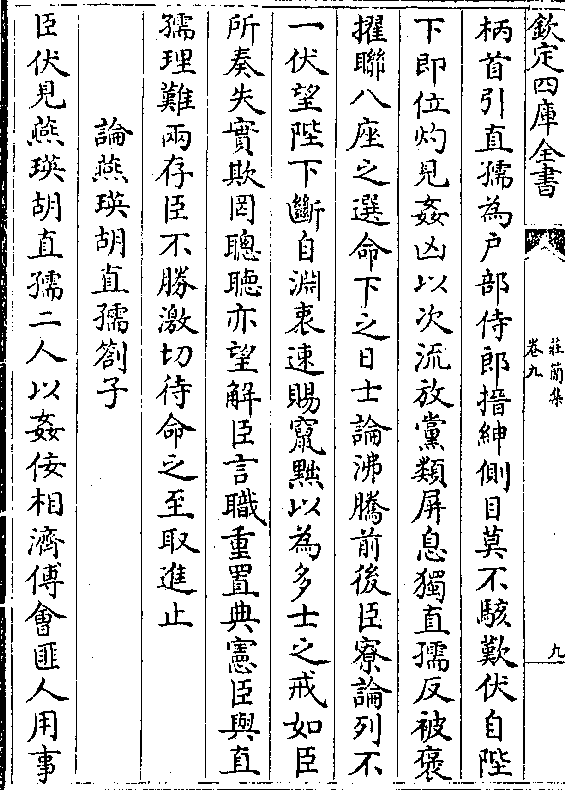 欽定四庫全書
莊簡集
卷九
九
柄首引直孺為户部侍郎搢紳側目莫不駭歎伏自陛
下即位灼見姦凶以次流放黨類屏息獨直孺反被褒
擢聯八座之選命下之日士論沸騰前後臣寮論列不
一伏望陛下斷自淵衷速賜竄黜以為多士之戒如臣
所奏失實欺罔聰聽亦望解臣言職重置典憲臣與直
孺理難兩存臣不勝激切待命之至取進止
論燕瑛胡直孺劄子
臣伏見燕瑛胡直孺二人以姦佞相濟傅會匪人用事